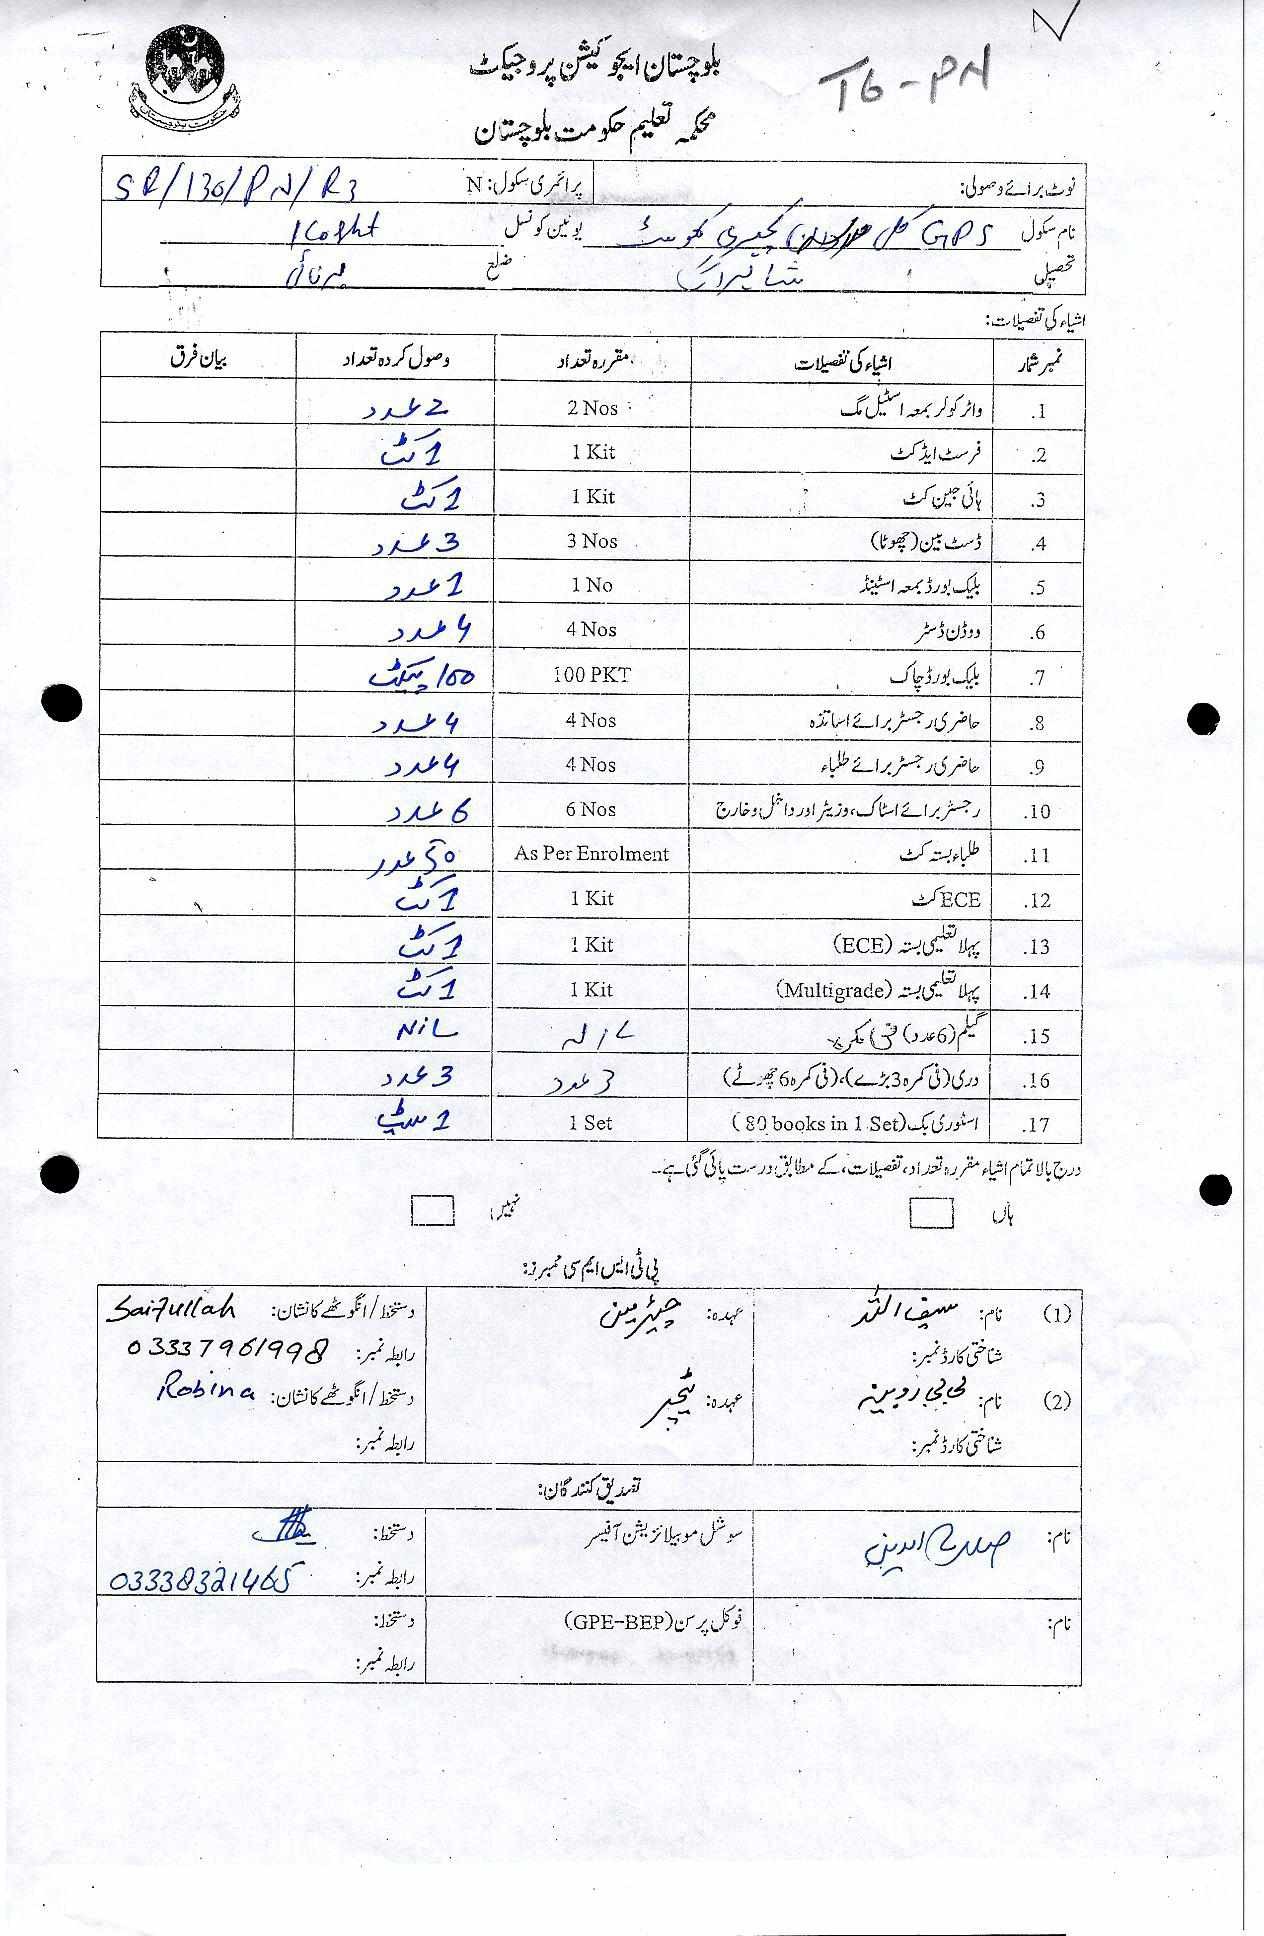 T6-PN
بلوچستان ایجوکیشن پروجیکٹ
محکمہ تعلیم حکومت بلوچستان
نوٹ برائے وصولی: پرائمری سکول: N SR/130/PN/R3
نام سکول GPS کلی کچری کھوسٹ یونین کونسل Kosht
تحصیل شاہرگ ضلع ہرنائی
اشیاء کی تفصیلات:
نمبر شمار اشیاء کی تفصیلات مقررہ تعداد وصول کردہ تعداد بیان فرق
1. واٹر کولر بمعہ اسٹیل مگ 2 Nos 2 عدد
2. فرسٹ ایڈ کٹ 1 Kit 1 کٹ
3. ہائی جین کٹ 1 Kit 1 کٹ
4. ڈسٹ بین (چھوٹا) 3 Nos 3 عدد
5. بلیک بورڈ بمعہ اسٹینڈ 1 No 1 عدد
6. ووڈن ڈسٹر 4 Nos 4 عدد
7. بلیک بورڈ چاک 100 PKT 100 پیکٹ
8. حاضری رجسٹر برائے اساتذہ 4 Nos 4 عدد
9. حاضری رجسٹر برائے طلباء 4 Nos 4 عدد
10. رجسٹر برائے اسٹاک، وزیٹر اور داخل و خارج 6 Nos 6 عدد
11. طلباء بستہ کٹ As Per Enrolment 50 عدد
12. ECE کٹ 1 Kit 1 کٹ
13. پہلا تعلیمی بستہ (ECE) 1 Kit 1 کٹ
14. پہلا تعلیمی بستہ (Multigrade) 1 Kit 1 کٹ
15. گیلم (6 عدد) فی کمرہ NiL
16. دری (فی کمرہ 3 بڑے)، (فی کمرہ 6 چھوٹے) 3 عدد 3 عدد
17. اسٹوری بک (80 books in 1 Set) 1 Set 1 سیٹ
درج بالا تمام اشیاء مقررہ تعداد، تفصیلات، کے مطابق درست پائی گئی ہے۔
ہاں نہیں
پی ٹی ایس ایم سی ممبرز:
(1) نام: سیف اللہ عہدہ: چیئرمین دستخط / انگوٹھے کا نشان: Saifullah
شناختی کارڈ نمبر: رابطہ نمبر: 03337961998
(2) نام: بی بی روبینہ عہدہ: ٹیچر دستخط / انگوٹھے کا نشان: Robina
شناختی کارڈ نمبر: رابطہ نمبر:
تصدیق کنندگان:
نام: صلاح الدین سوشل موبیلائزیشن آفیسر دستخط:
رابطہ نمبر: 03338321465
نام: فوکل پرسن (GPE-BEP) دستخط:
رابطہ نمبر: